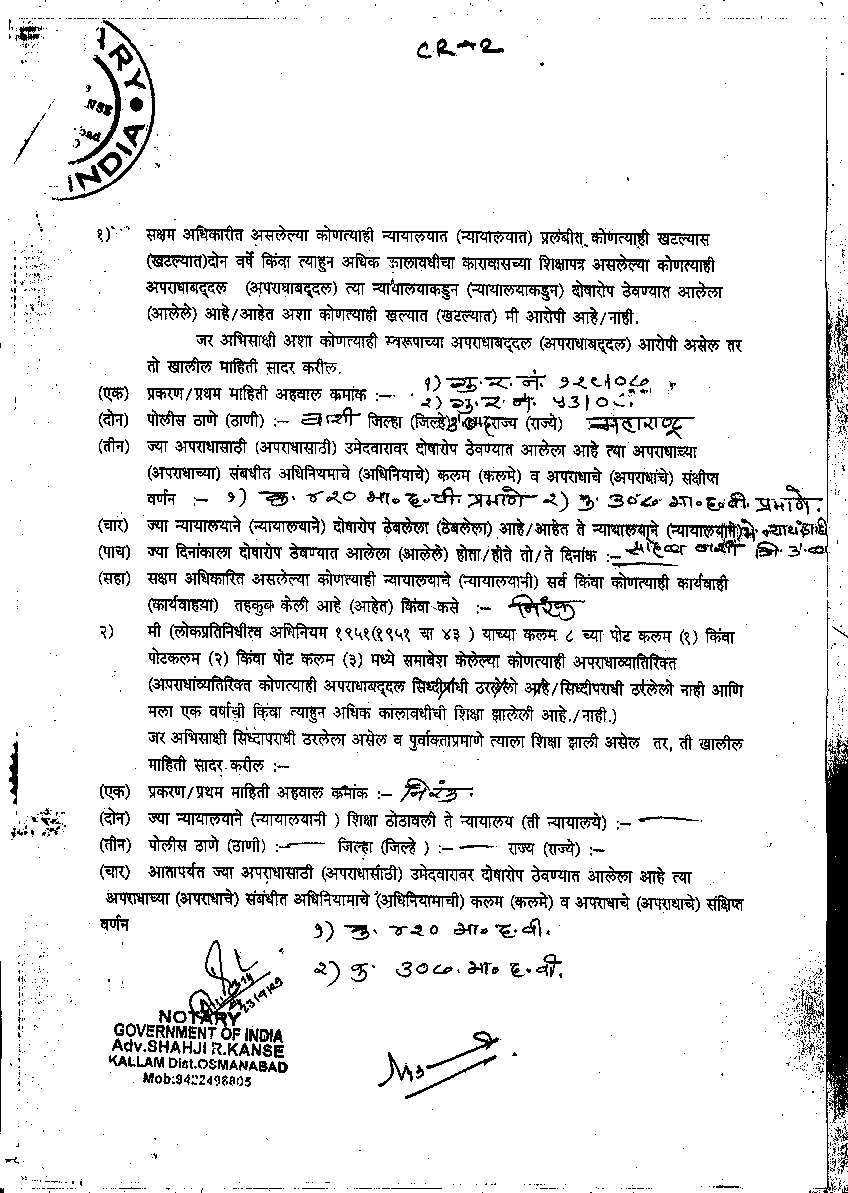 CR-2
NOTARY
INDIA
१) सक्षम अधिकारीत असलेल्या कोणत्याही न्यायालयात (न्यायालयात) प्रलंबीत कोणत्याही खटल्यास
(खटल्यात)दोन वर्षे किंवा त्याहुन अधिक कालावधीचा कारावासच्या शिक्षापत्र असलेल्या कोणत्याही
अपराधाबद्दल (अपराधाबद्दल) त्या न्यायालयाकडुन (न्यायालयाकडुन) दोषारोप ठेवण्यात आलेला
(आलेले) आहे/आहेत अशा कोणत्याही खल्यात (खटल्यात) मी आरोपी आहे/नाही.
जर अभिसाक्षी अशा कोणत्याही स्वरूपाच्या अपराधाबद्दल (अपराधाबद्दल) आरोपी असेल तर
तो खालील माहिती सादर करील.
(एक) प्रकरण/प्रथम माहिती अहवाल क्रमांक :– १) गु.र.नं.
२) गु.र.नं.
(दोन) पोलीस ठाणे (ठाणी) :– वाशी जिल्हा (जिल्हे) राज्य (राज्ये) महाराष्ट्र
(तीन) ज्या अपराधासाठी (अपराधासाठी) उमेदवारावर दोषारोप ठेवण्यात आलेला आहे त्या अपराधाच्या
(अपराधाच्या) संबधीत अधिनियमाचे (अधिनियाचे) कलम (कलमे) व अपराधाचे (अपराधांचे) संक्षीप्त
वर्णन :– १) कु. ४२० भा.द.वी. प्रमाणे २) कु. ३०७ भा.द.वी. प्रमाणे.
(चार) ज्या न्यायालयाने (न्यायालयाने) दोषारोप ठेबलेला (ठेबलेला) आहे/आहेत ते न्यायालयाने (न्यायालयाने)
(पाच) ज्या दिनांकाला दोषारोप ठेबण्यात आलेला (आलेले) होता/होते तो/ते दिनांक :–
(सहा) सक्षम अधिकारित असलेल्या कोणत्याही न्यायालयाचे (न्यायालयानी) सर्व किंवा कोणत्याही कार्यवाही
(कार्यवाहया) तहकुब केली आहे (आहेत) किंवा कसे :– निरंक
२) मी (लोकप्रतिनिधीत्व अधिनियम १९५१(१९५१ चा ४३ ) याच्या कलम ८ च्या पोट कलम (१) किंवा
पोटकलम (२) किंवा पोट कलम (३) मध्ये समावेश केलेल्या कोणत्याही अपराधाव्यातिरिक्त
(अपराधांव्यतिरिक्त कोणत्याही अपराधाबद्दल सिध्दीर्पाधी ठरलेलो आहे/सिध्दीपराधी ठरलेलो नाही आणि
मला एक वर्षाची किंवा त्याहुन अधिक कालावधीची शिक्षा झालेली आहे./नाही.)
जर अभिसाक्षी सिध्दापराधी ठरलेला असेल व पुर्वाक्ताप्रमाणे त्याला शिक्षा झाली असेल तर, ती खालील
माहिती सादर करील :–
(एक) प्रकरण/प्रथम माहिती अहवाल क्रमांक :– निरंक.
(दोन) ज्या न्यायालयाने (न्यायालयानी ) शिक्षा ठोठावली ते न्यायालय (ती न्यायालये) :–
(तीन) पोलीस ठाणे (ठाणी) :– जिल्हा (जिल्हे ) :– राज्य (राज्ये) :–
(चार) आतापर्यत ज्या अपराधासाठी (अपराधासाठी) उमेदवारावर दोषारोप ठेवण्यात आलेला आहे त्या
अपराधाच्या (अपराधाचे) संबंधीत अधिनियामाचे (अधिनियामाची) कलम (कलमे) व अपराधाचे (अपराधाचे) संक्षिप्त
वर्णन १) कु. ४२० भा. द. वी.
२) कु. ३०७. भा. द. वी.
NOTARY
GOVERNMENT OF INDIA
Adv.SHAHJI R.KANSE
KALLAM Dist.OSMANABAD
Mob:9422498805